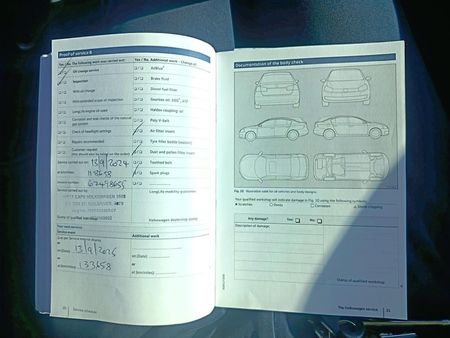 Proof of service 6
Yes / No The following work was carried out:
Oil change service
Inspection
With oil change
With extended scope of inspection
LongLife engine oil used
Corrosion and leak checks of the natural gas system
Check of headlight settings
Repairs recommended
Customer request
Service carried out on: 13/9/2024
at (km/miles): 118658
Service carried out by:
Next service:
Service event
Due per service interval display
on (Date) 13/9/2026
or
at (km/miles) 133658
20 Service schedule
Yes / No Additional work - Change of:
AdBlue®
Brake fluid
Diesel fuel filter
Haldex coupling: oil
Poly V-belt
Air filter insert
Tyre filler bottle (sealant)
Dust and pollen filter insert
Toothed belt
Spark plugs
LongLife mobility guarantee
Volkswagen dealership stamp
Additional work
on (Date)
or
at (km/miles)
Documentation of the body check
Fig. 10 Illustration used for all vehicles and body designs
Your qualified workshop will indicate damage in Fig. 10 using the following symbols:
Scratches
Dents
Corrosion
Stone chipping
Any damage?
Yes:
No:
Description of damage:
Stamp of qualified workshop
The Volkswagen service 21